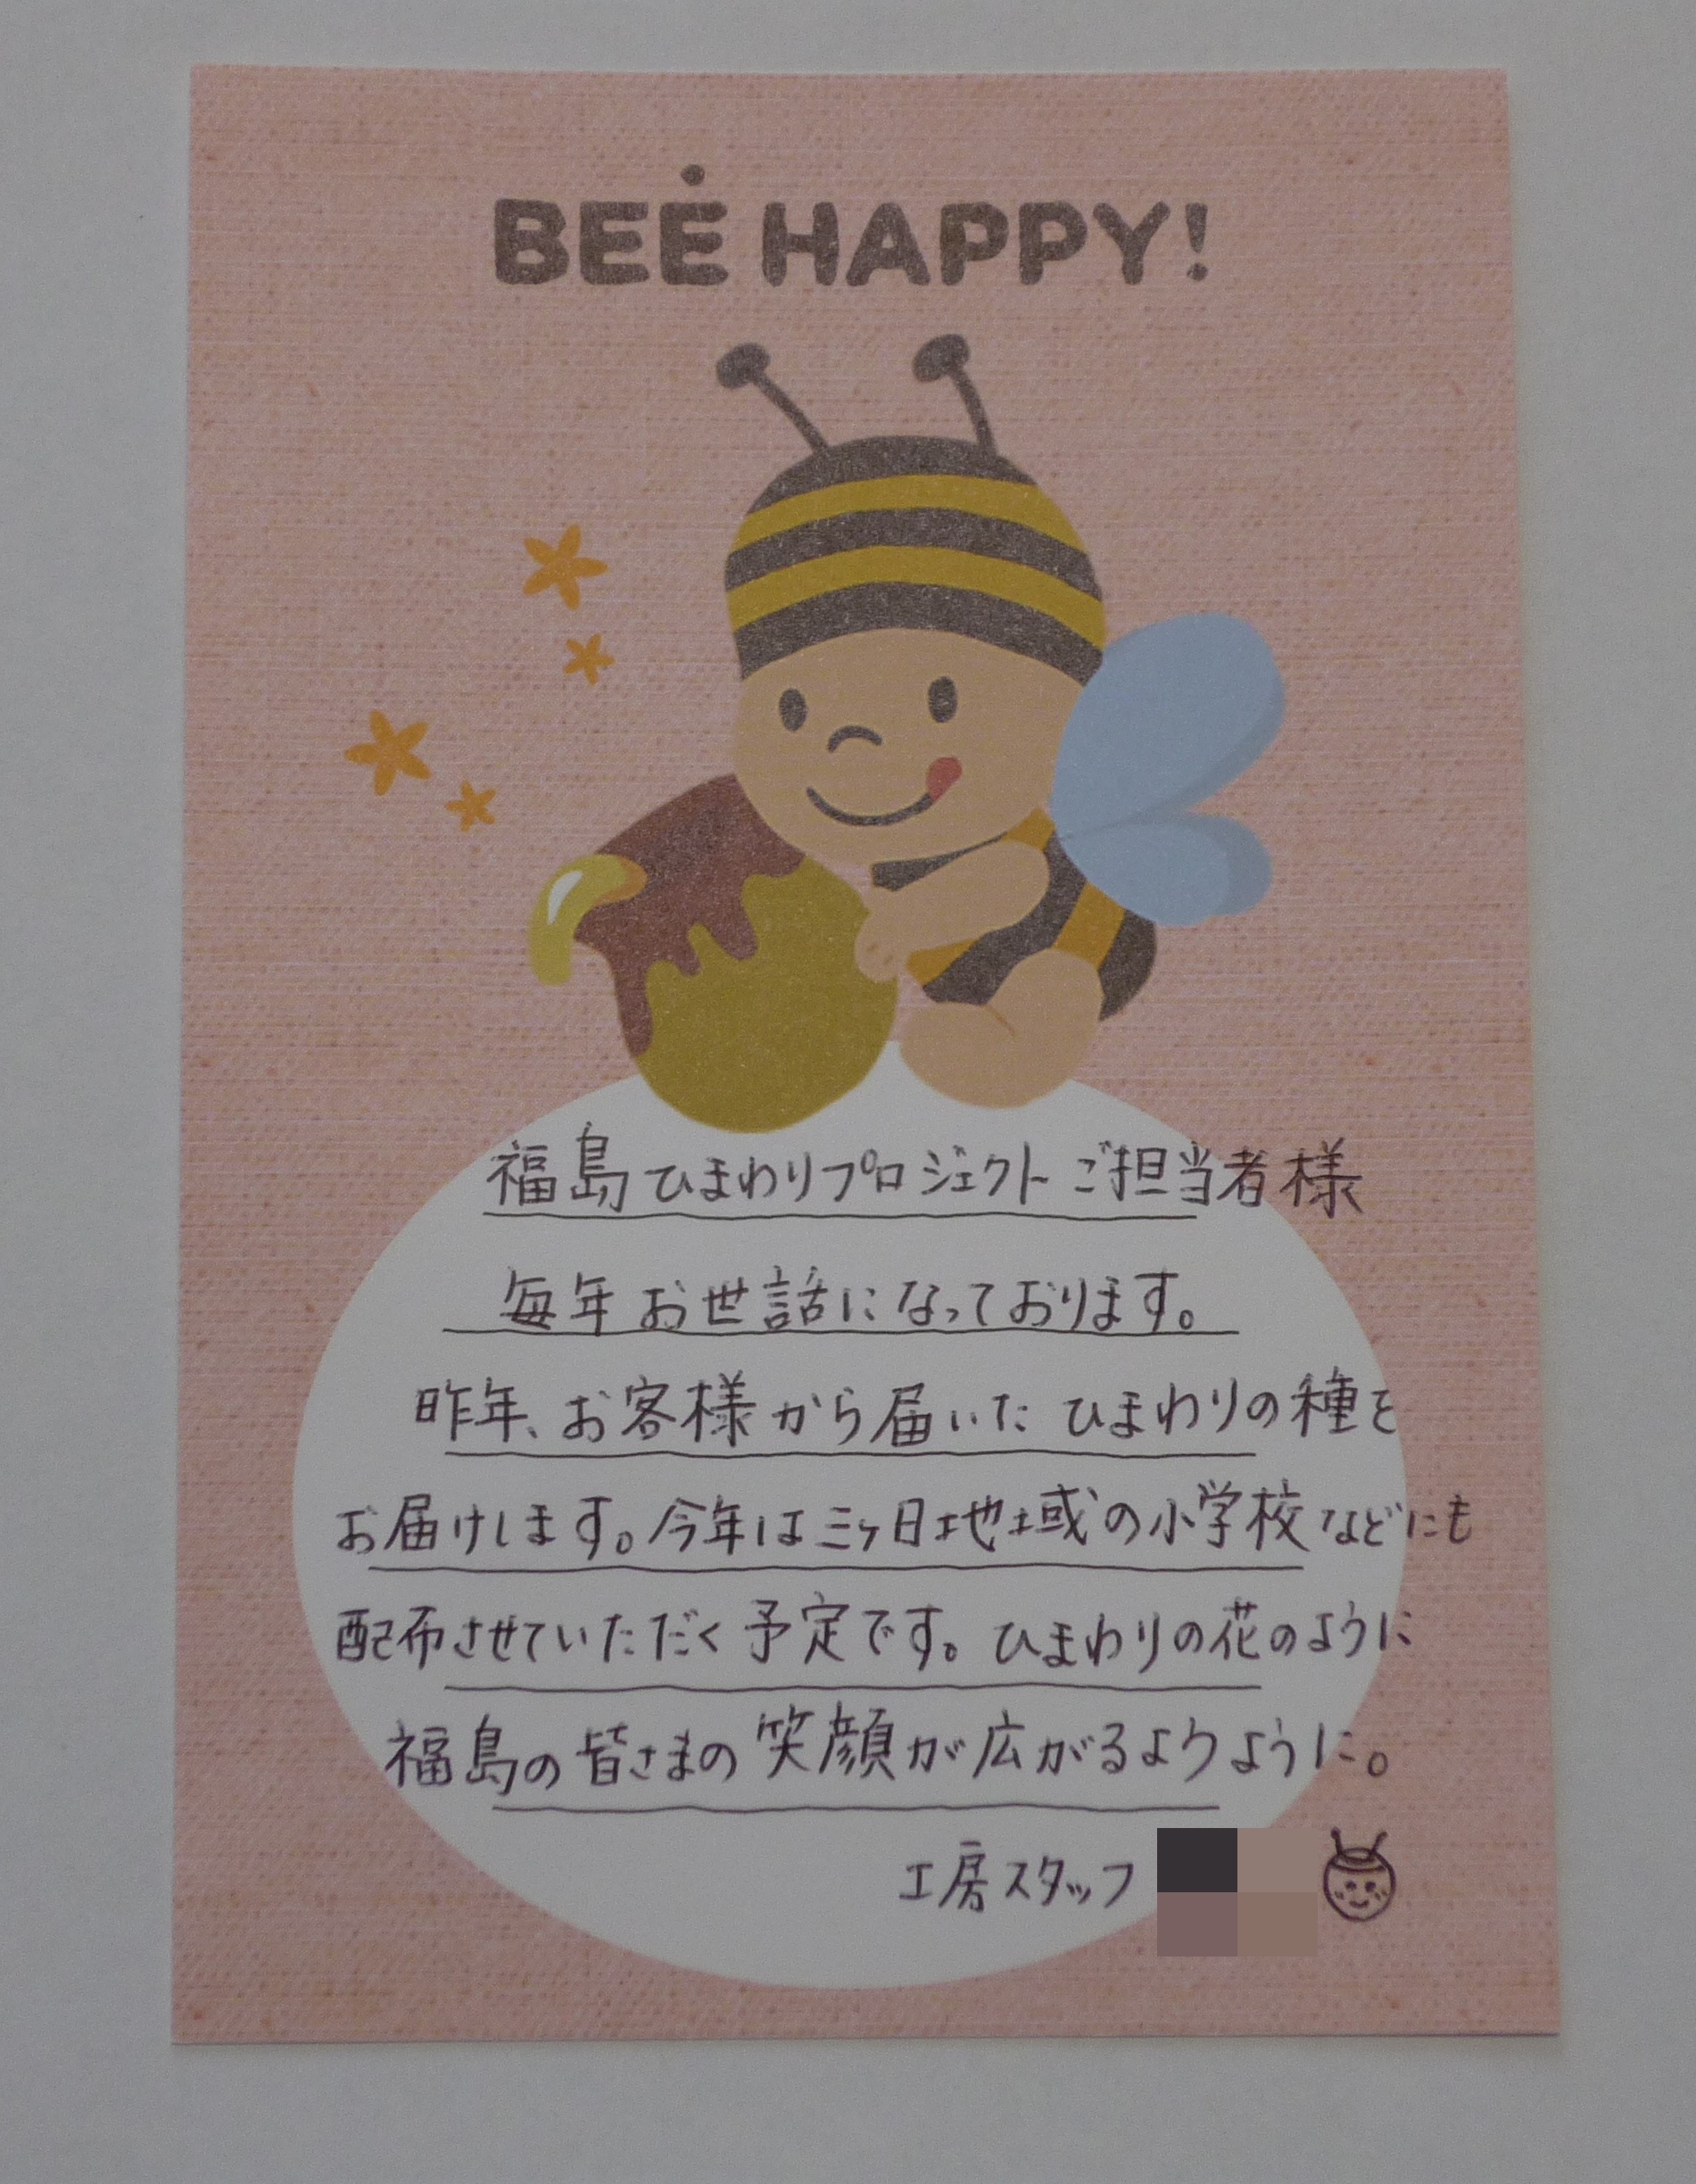 BEE HAPPY!
福島ひまわりプロジェクト ご担当者様
毎年お世話になっております。
昨年、お客様から届いた ひまわりの種を
お届けします。今年は三ヶ日地域の小学校などにも
配布させていただく予定です。ひまわりの花のように
福島の皆さまの笑顔が広がるようように。
工房スタッフ